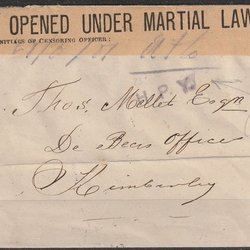 OPENED UNDER MARTIAL LAW
INITIALS OF CENSORING OFFICER:
Thos. Mellet Esqr
De Beers Office
Kimberley